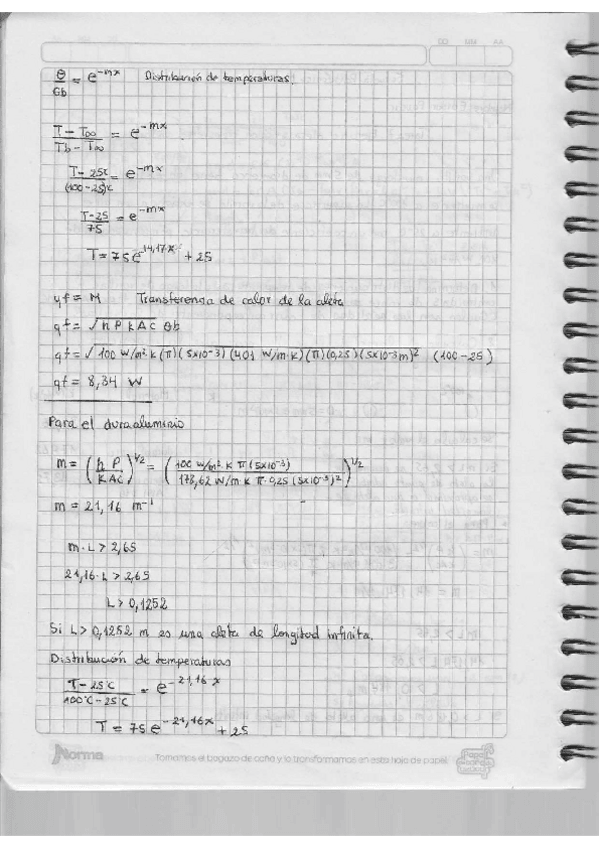 AA MM DD
θ/Gb = e^-mx Distribución de temperaturas.
T - T∞ / Tb - T∞ = e^-mx
T - 25K / (100-25)K = e^-mx
T-25 / 75 = e^-mx
T = 75e^14,17x + 25
qf = M Transferencia de calor de la aleta
qf = √hPkAc θb
qf = √100 W/m².k (π)(5x10^-3)(401 W/m.k)(π)(0,25)(5x10^-3m)² (100-25)
qf = 8,34 W
Para el duraaluminio
m = (h P / k AC)^1/2 = (100 W/m².k π (5x10^-3) / 178,62 W/m.k π.0,25 (5x10^-3)²)^1/2
m = 21,16 m^-1
m.L > 2,65
21,16.L > 2,65
L > 0,1252
Si L > 0,1252 m es una aleta de longitud infinita.
Distribución de temperaturas
T - 25°C / 100°C - 25°C = e^-21,16 x
T = 75e^-21,16x + 25
Norma Tomamos el bagazo de caña y lo transformamos en esta hoja de papel.